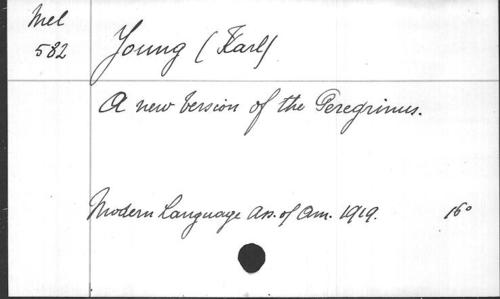 Mel
582
Young (Karl)
A new version of the Peregrinus.
Modern Language Ass. of Am. 1919. 16°